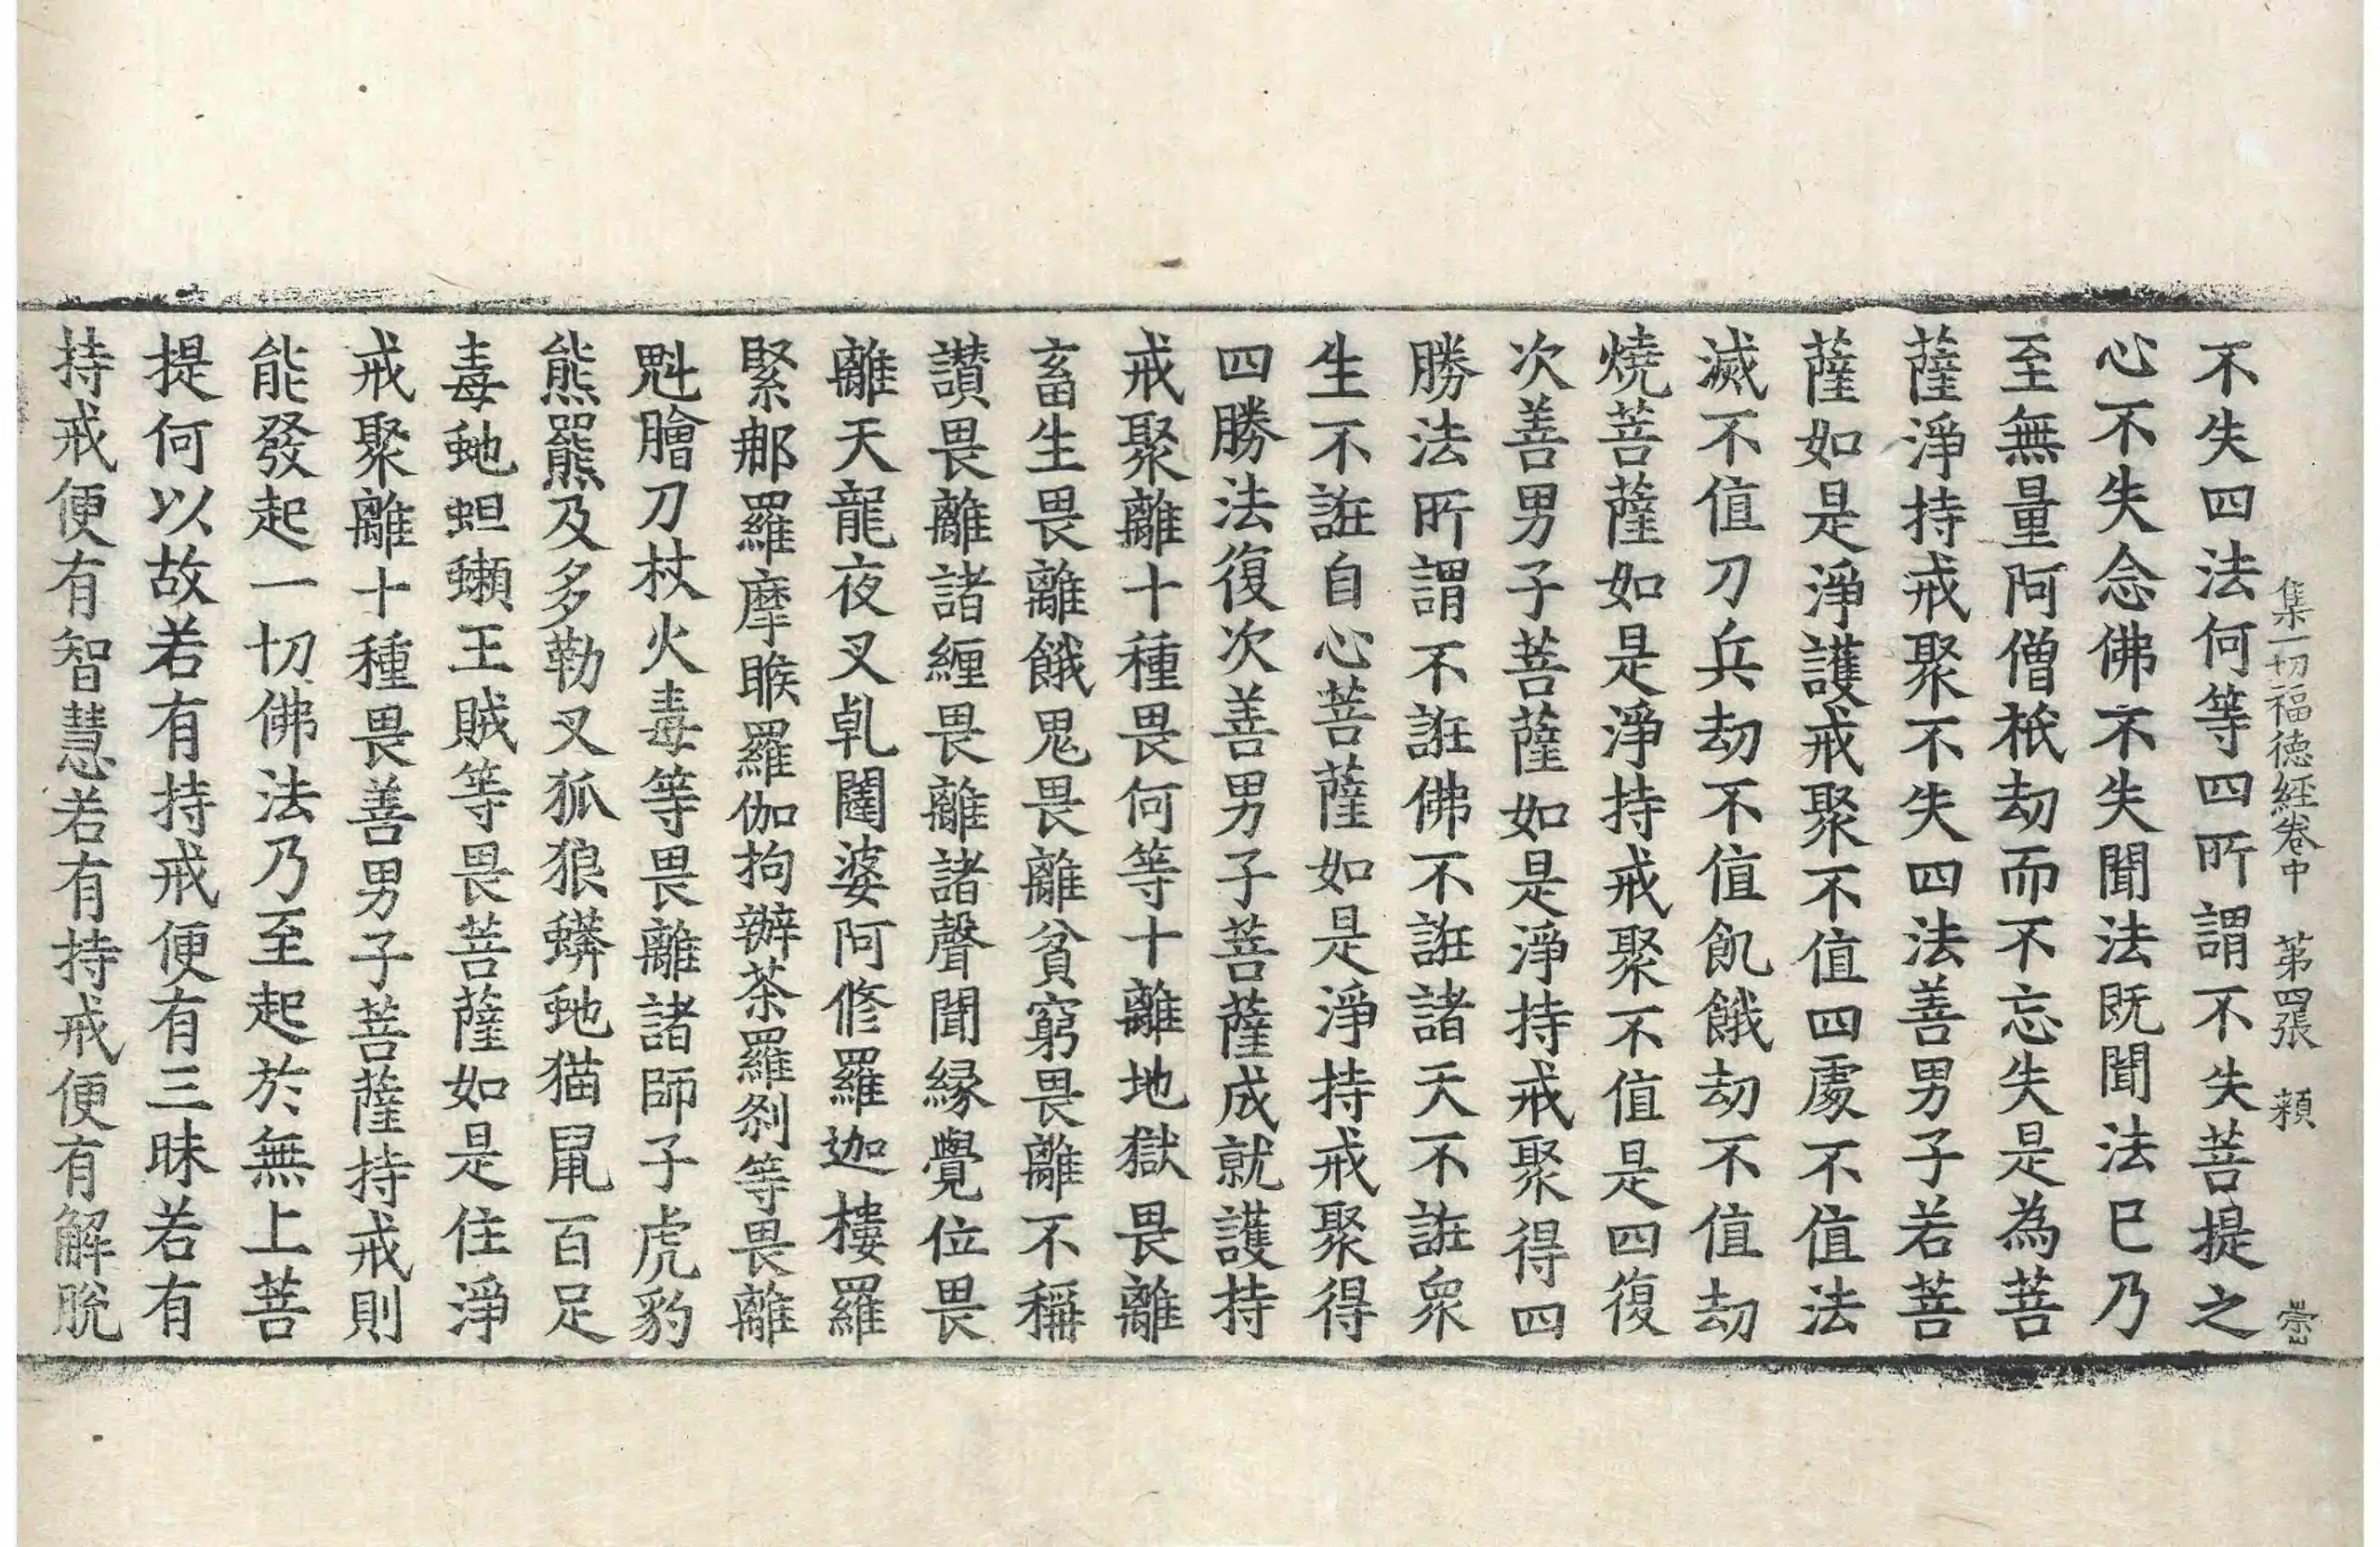 集一切福德經卷中 第四張 頼 崇
不失四法何等四所謂不失菩提之
心不失念佛不失聞法既聞法已乃
至無量阿僧祇劫而不忘失是為菩
薩淨持戒聚不失四法善男子若菩
薩如是淨護戒聚不值四處不值法
滅不值刀兵劫不值飢餓劫不值劫
燒菩薩如是淨持戒聚不值是四復
次善男子菩薩如是淨持戒聚得四
勝法所謂不誑佛不誑諸天不誑衆
生不誑自心菩薩如是淨持戒聚得
四勝法復次善男子菩薩成就護持
戒聚離十種畏何等十離地獄畏離
畜生畏離餓鬼畏離貧窮畏離不稱
讃畏離諸纏畏離諸聲聞緣覺位畏
離天龍夜叉乹闥婆阿修羅迦樓羅
緊那羅摩睺羅伽拘辦茶羅剎等畏
魁膾刀杖火毒等畏離諸師子虎豹
熊羆及多勒叉狐狼蟒虵猫鼠百足
毒虵蛆蠍王賊等畏菩薩如是住淨
戒聚離十種畏善男子菩薩持戒則
能發起一切佛法乃至起於無上菩
提何以故若有持戒便有三昧若有
持戒便有智慧若有持戒便有解脫